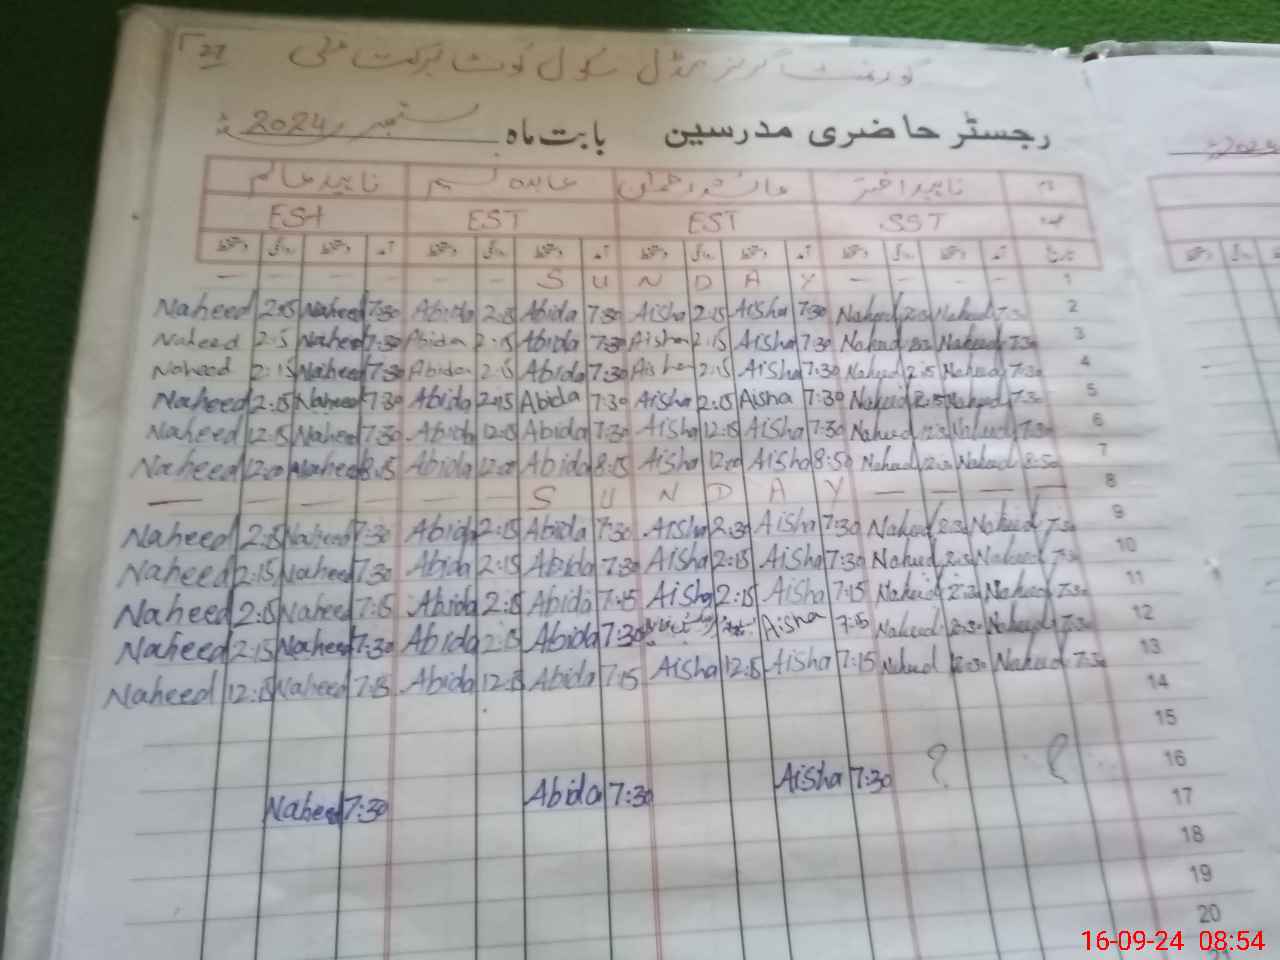 27 گورنمنٹ گرلز مڈل سکول کوٹ برکت علی
رجسٹر حاضری مدرسین بابت ماہ ستمبر 2024ء
نام ناہید اختر عائشہ رحمانی عابدہ نسیم ناہید عالم
عہدہ SST EST EST EST
تاریخ آمد دستخط روانگی دستخط آمد دستخط روانگی دستخط آمد دستخط روانگی دستخط آمد دستخط روانگی دستخط
— — — — — — S U N D A Y — — — — 1
Naheed 2:15 Naheed 7:30 Abida 2:15 Abida 7:30 Aisha 2:15 Aisha 7:30 Naheed 2:15 Naheed 7:30 2
Naheed 2:15 Naheed 7:30 Abida 2:15 Abida 7:30 Aisha 2:15 Aisha 7:30 Naheed Naheed 7:30 3
Naheed 2:15 Naheed 7:30 Abida 2:15 Abida 7:30 Aisha 2:15 Aisha 7:30 Naheed 2:15 Naheed 7:30 4
Naheed 2:15 Naheed 7:30 Abida 2:15 Abida 7:30 Aisha 2:15 Aisha 7:30 Naheed 2:15 Naheed 7:30 5
Naheed 12:15 Naheed 7:30 Abida 12:15 Abida 7:30 Aisha 12:15 Aisha 7:30 Naheed Naheed 7:30 6
Naheed 12:00 Naheed 8:15 Abida 12:00 Abida 8:15 Aisha 12:00 Aisha 8:50 Naheed Naheed 8:50 7
— — — — — — S U N D A Y — — — — 8
Naheed 2:15 Naheed 7:30 Abida 2:15 Abida 7:30 Aisha 2:30 Aisha 7:30 Naheed 2:30 Naheed 7:30 9
Naheed 2:15 Naheed 7:30 Abida 2:15 Abida 7:30 Aisha 2:15 Aisha 7:30 Naheed Naheed 7:30 10
Naheed 2:15 Naheed 7:15 Abida 2:15 Abida 7:15 Aisha 2:15 Aisha 7:15 Naheed 2:30 Naheed 7:30 11
Naheed 2:15 Naheed 7:30 Abida 2:15 Abida 7:30 Aisha 7:15 Naheed 2:30 Naheed 7:30 12
Naheed 12:15 Naheed 7:15 Abida 12:15 Abida 7:15 Aisha 12:15 Aisha 7:15 Naheed 12:30 Naheed 7:30 13
14
15
Naheed 7:30 Abida 7:30 Aisha 7:30 ? ? 16
17
18
19
20
16-09-24 08:54